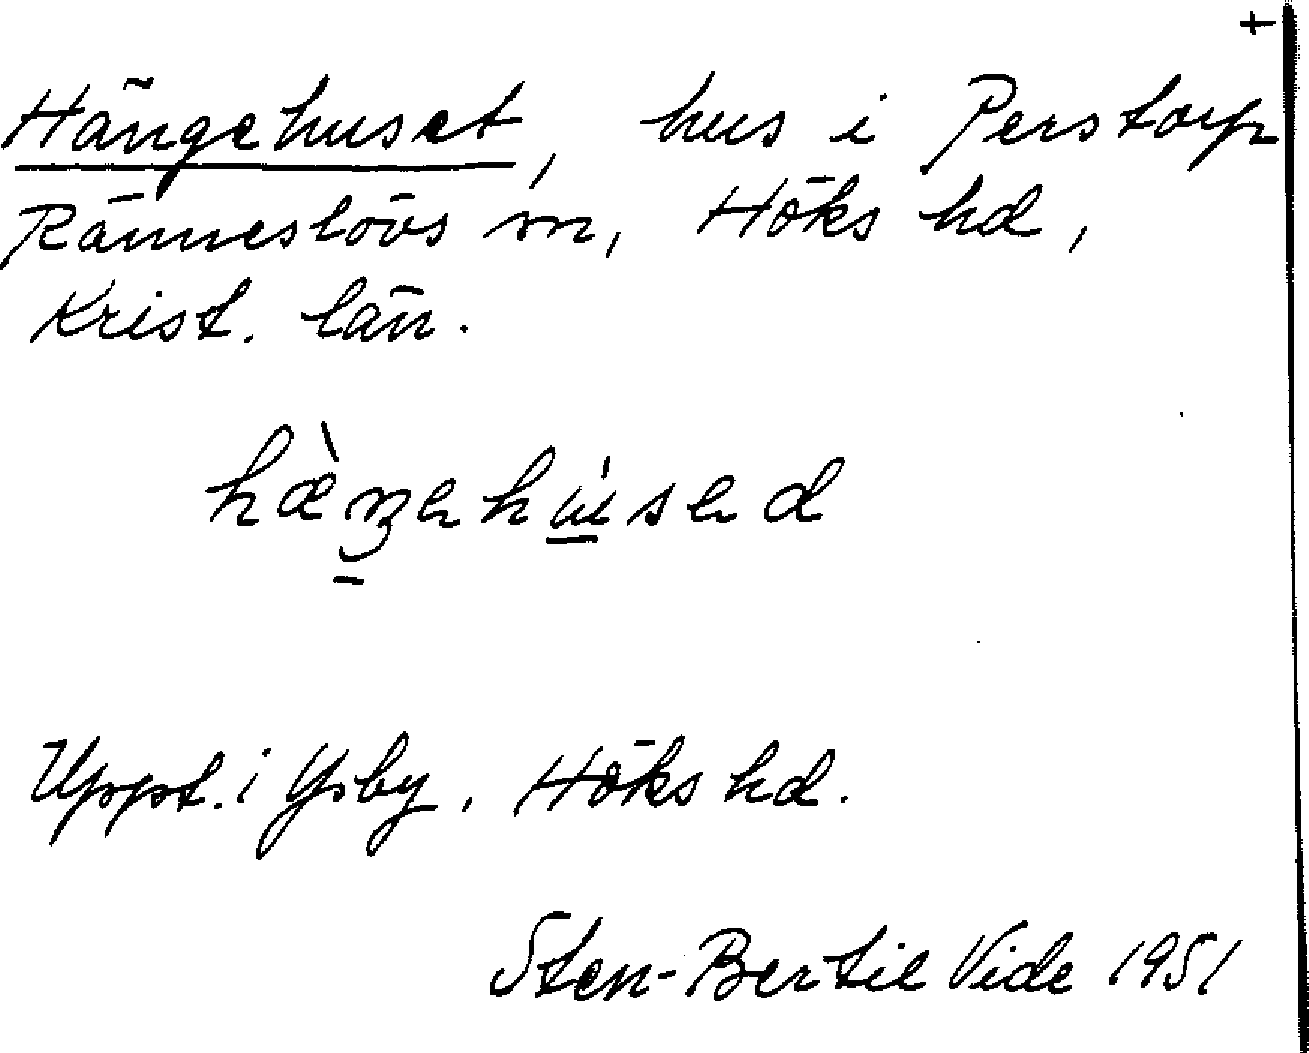 †
Hängehuset, hus i Perstorp
Ränneslövs sn, Höks hd,
Krist. län.
Uppt. i Ysby, Höks hd.
Sten-Bertil Vide 1951